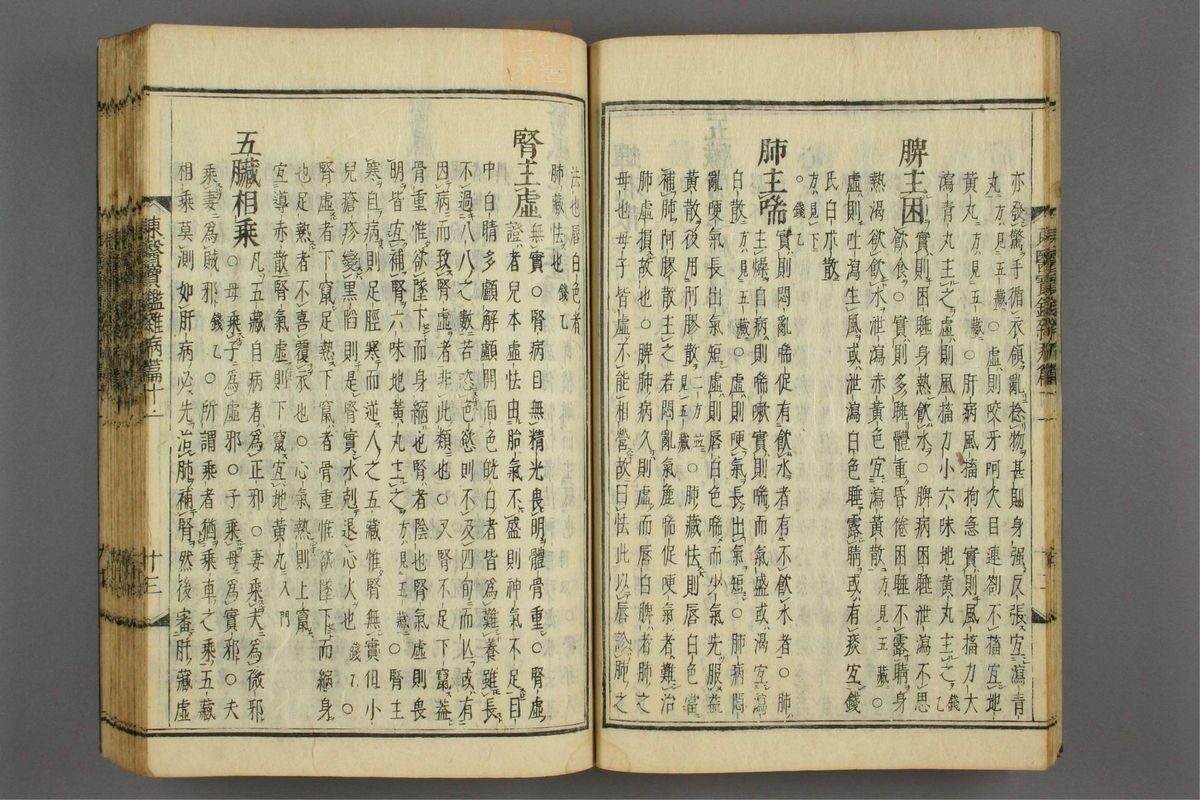 亦發驚手循衣領亂捻物甚則身强反張宜瀉青
丸方見五藏○虛則咬牙呵欠目連劄不搐宜地
黃丸方見五藏○肝病風搐拘急實則風搐力大
瀉青丸主之虛則風搐力小六味地黃丸主之錢乙
脾主困實則困睡身熱飮水○脾病困睡泄瀉不思
飮食○實則多睡體重昏倦困睡不露睛身
熱渴欲飮水泄瀉赤黃色宜瀉黃散方見五藏○
虛則吐瀉生風或泄瀉白色睡露睛或有痰宜錢
氏白朮散
方見下○錢乙
肺主喘實則悶亂喘促有飮水者有不飮水者○肺
主燥自病則喘嗽實則喘而氣盛或渴宜瀉
白散方見五藏○虛則哽氣長出氣短○肺病悶
亂哽氣長出氣短虛則唇白色喘而少氣先服益
黃散後用阿膠散二方並見五藏○肺藏怯則唇白色當
補肺阿膠散主之若悶亂氣麁喘促哽氣者難治
肺虛損故也○脾肺病久則虛而唇白脾者肺之
母也母子皆虛不能相營故曰怯此以唇診肺之
法也唇白色者
肺藏怯也錢乙
腎主虛無實○腎病目無精光畏明體骨重○腎虛
證者兒本虛怯由胎氣不盛則神氣不足目
中白睛多顱解顱開面色㿠白者皆爲難養雖長
不過八八之數若恣色慾則不及四旬而亡或有
因病而致腎虛者非此類也○又腎不足下竄葢
骨重惟欲墜下而身縮也腎者陰也腎氣虛則畏
明皆宜補腎六味地黃丸主之方見五藏○腎主
寒自病則足脛寒而逆人之五藏惟腎無實但小
兒瘡疹變黑陷則是腎實水剋退心火也錢乙○
腎虛者下竄足熱下竄者骨重惟欲墜下而縮身
也足熱者不喜覆衣也○心氣熱則上竄
宜導赤散腎氣虛則下竄宜地黃丸入門
五臟相乘凡五藏自病者爲正邪○妻乘夫爲微邪
○母乘子爲虛邪○子乘母爲實邪○夫
乘妻爲賊邪錢乙○所謂乘者猶乘車之乘五藏
相乘莫測如肝病必先治肺補腎然後審肝藏虛
東醫寶鑑雜病篇十一
廿三